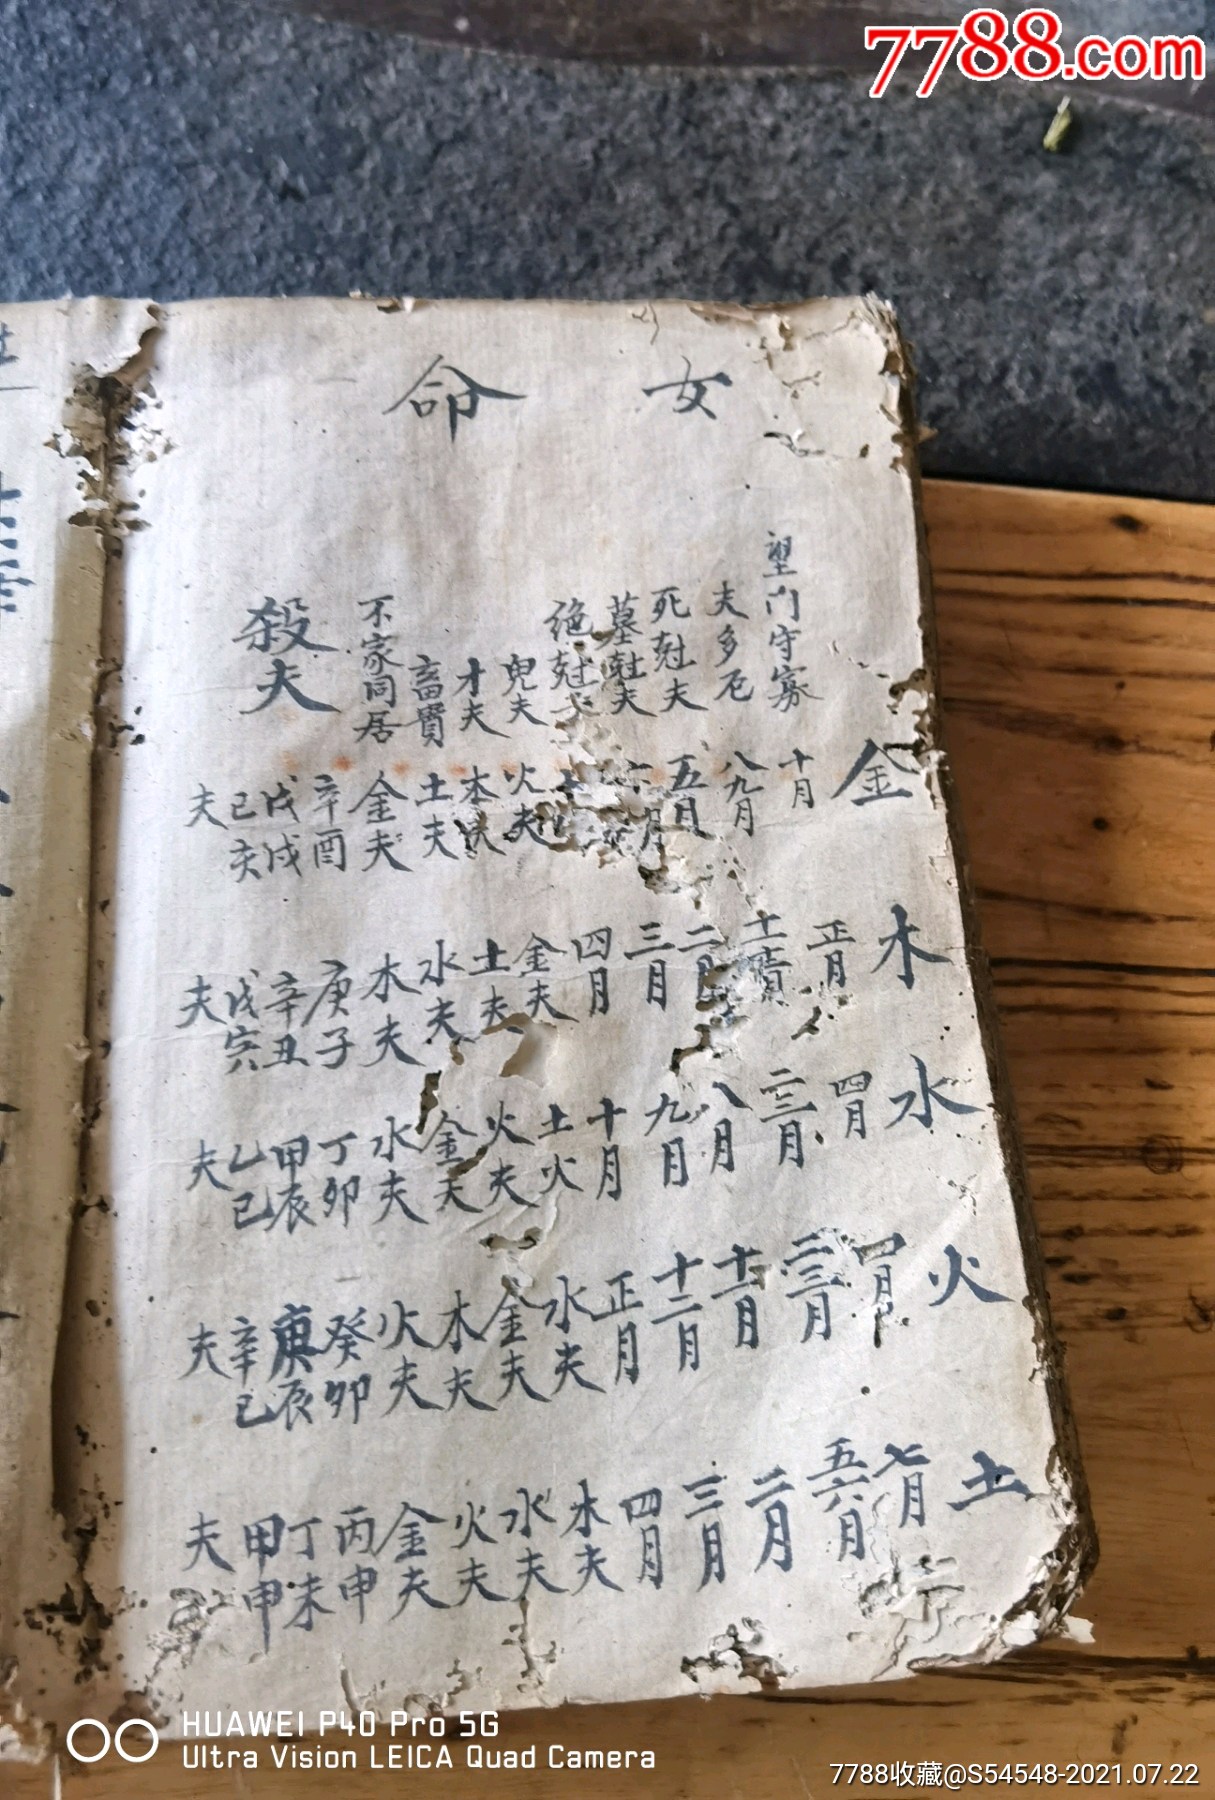 7788.com
女命
金 木 水 火 土
望门守寡 十月 正月 四月 四月 七月
夫多厄 八九月 二三月 二三月 五六月
死尅夫 五月 二月 八月 十一月 二月
墓尅夫 六月 三月 九月 十二月 三月
绝尅夫 四月 十月 正月 四月
鬼夫 火夫 金夫 土火 水夫 木夫
才夫 木夫 土夫 火夫 金夫 水夫
畜貭 土夫 水夫 金夫 木夫 火夫
不家同居 金夫 木夫 水夫 火夫 金夫
殺夫 辛酉 庚子 丁卯 癸卯 丙申
戊戌 辛丑 甲辰 庚辰 丁未
己亥 戊寅 乙巳 辛巳 甲申
夫 夫 夫 夫 夫
HUAWEI P40 Pro 5G
Ultra Vision LEICA Quad Camera
7788收藏@S54548-2021.07.22